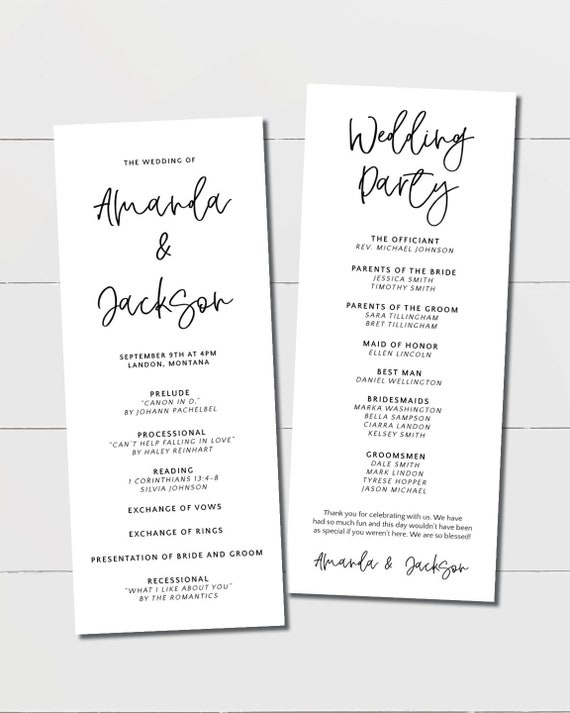 THE WEDDING OF
Amanda
&
Jackson
SEPTEMBER 9TH AT 4PM
LANDON, MONTANA
PRELUDE
"CANON IN D."
BY JOHANN PACHELBEL
PROCESSIONAL
"CAN'T HELP FALLING IN LOVE"
BY HALEY REINHART
READING
1 CORINTHIANS 13:4-8
SILVIA JOHNSON
EXCHANGE OF VOWS
EXCHANGE OF RINGS
PRESENTATION OF BRIDE AND GROOM
RECESSIONAL
"WHAT I LIKE ABOUT YOU"
BY THE ROMANTICS
Wedding
Party
THE OFFICIANT
REV. MICHAEL JOHNSON
PARENTS OF THE BRIDE
JESSICA SMITH
TIMOTHY SMITH
PARENTS OF THE GROOM
SARA TILLINGHAM
BRET TILLINGHAM
MAID OF HONOR
ELLEN LINCOLN
BEST MAN
DANIEL WELLINGTON
BRIDESMAIDS
MARKA WASHINGTON
BELLA SAMPSON
CIARRA LANDON
KELSEY SMITH
GROOMSMEN
DALE SMITH
MARK LINDON
TYRESE HOPPER
JASON MICHAEL
Thank you for celebrating with us. We have
had so much fun and this day wouldn't have been
as special if you weren't here. We are so blessed!
Amanda & Jackson